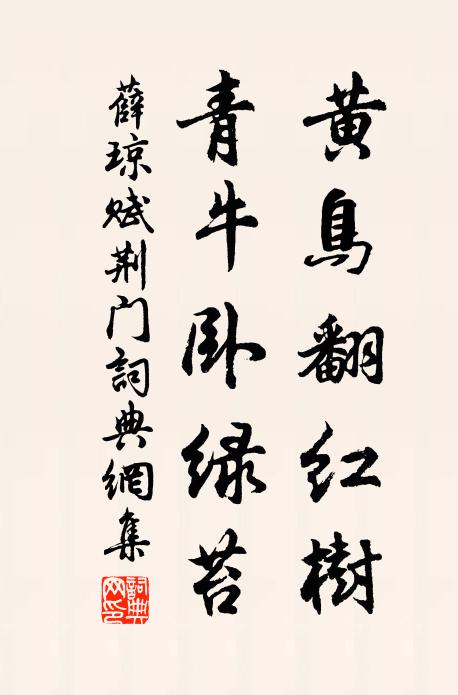 黄鳥翻紅樹
青牛卧緑苔
薛琼赋荆门詞典網集
詞典网印